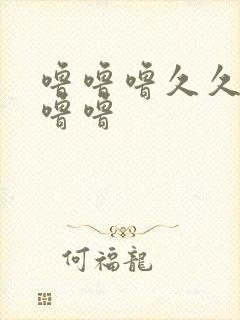 噜噜噜久久
噜噜
何福龍